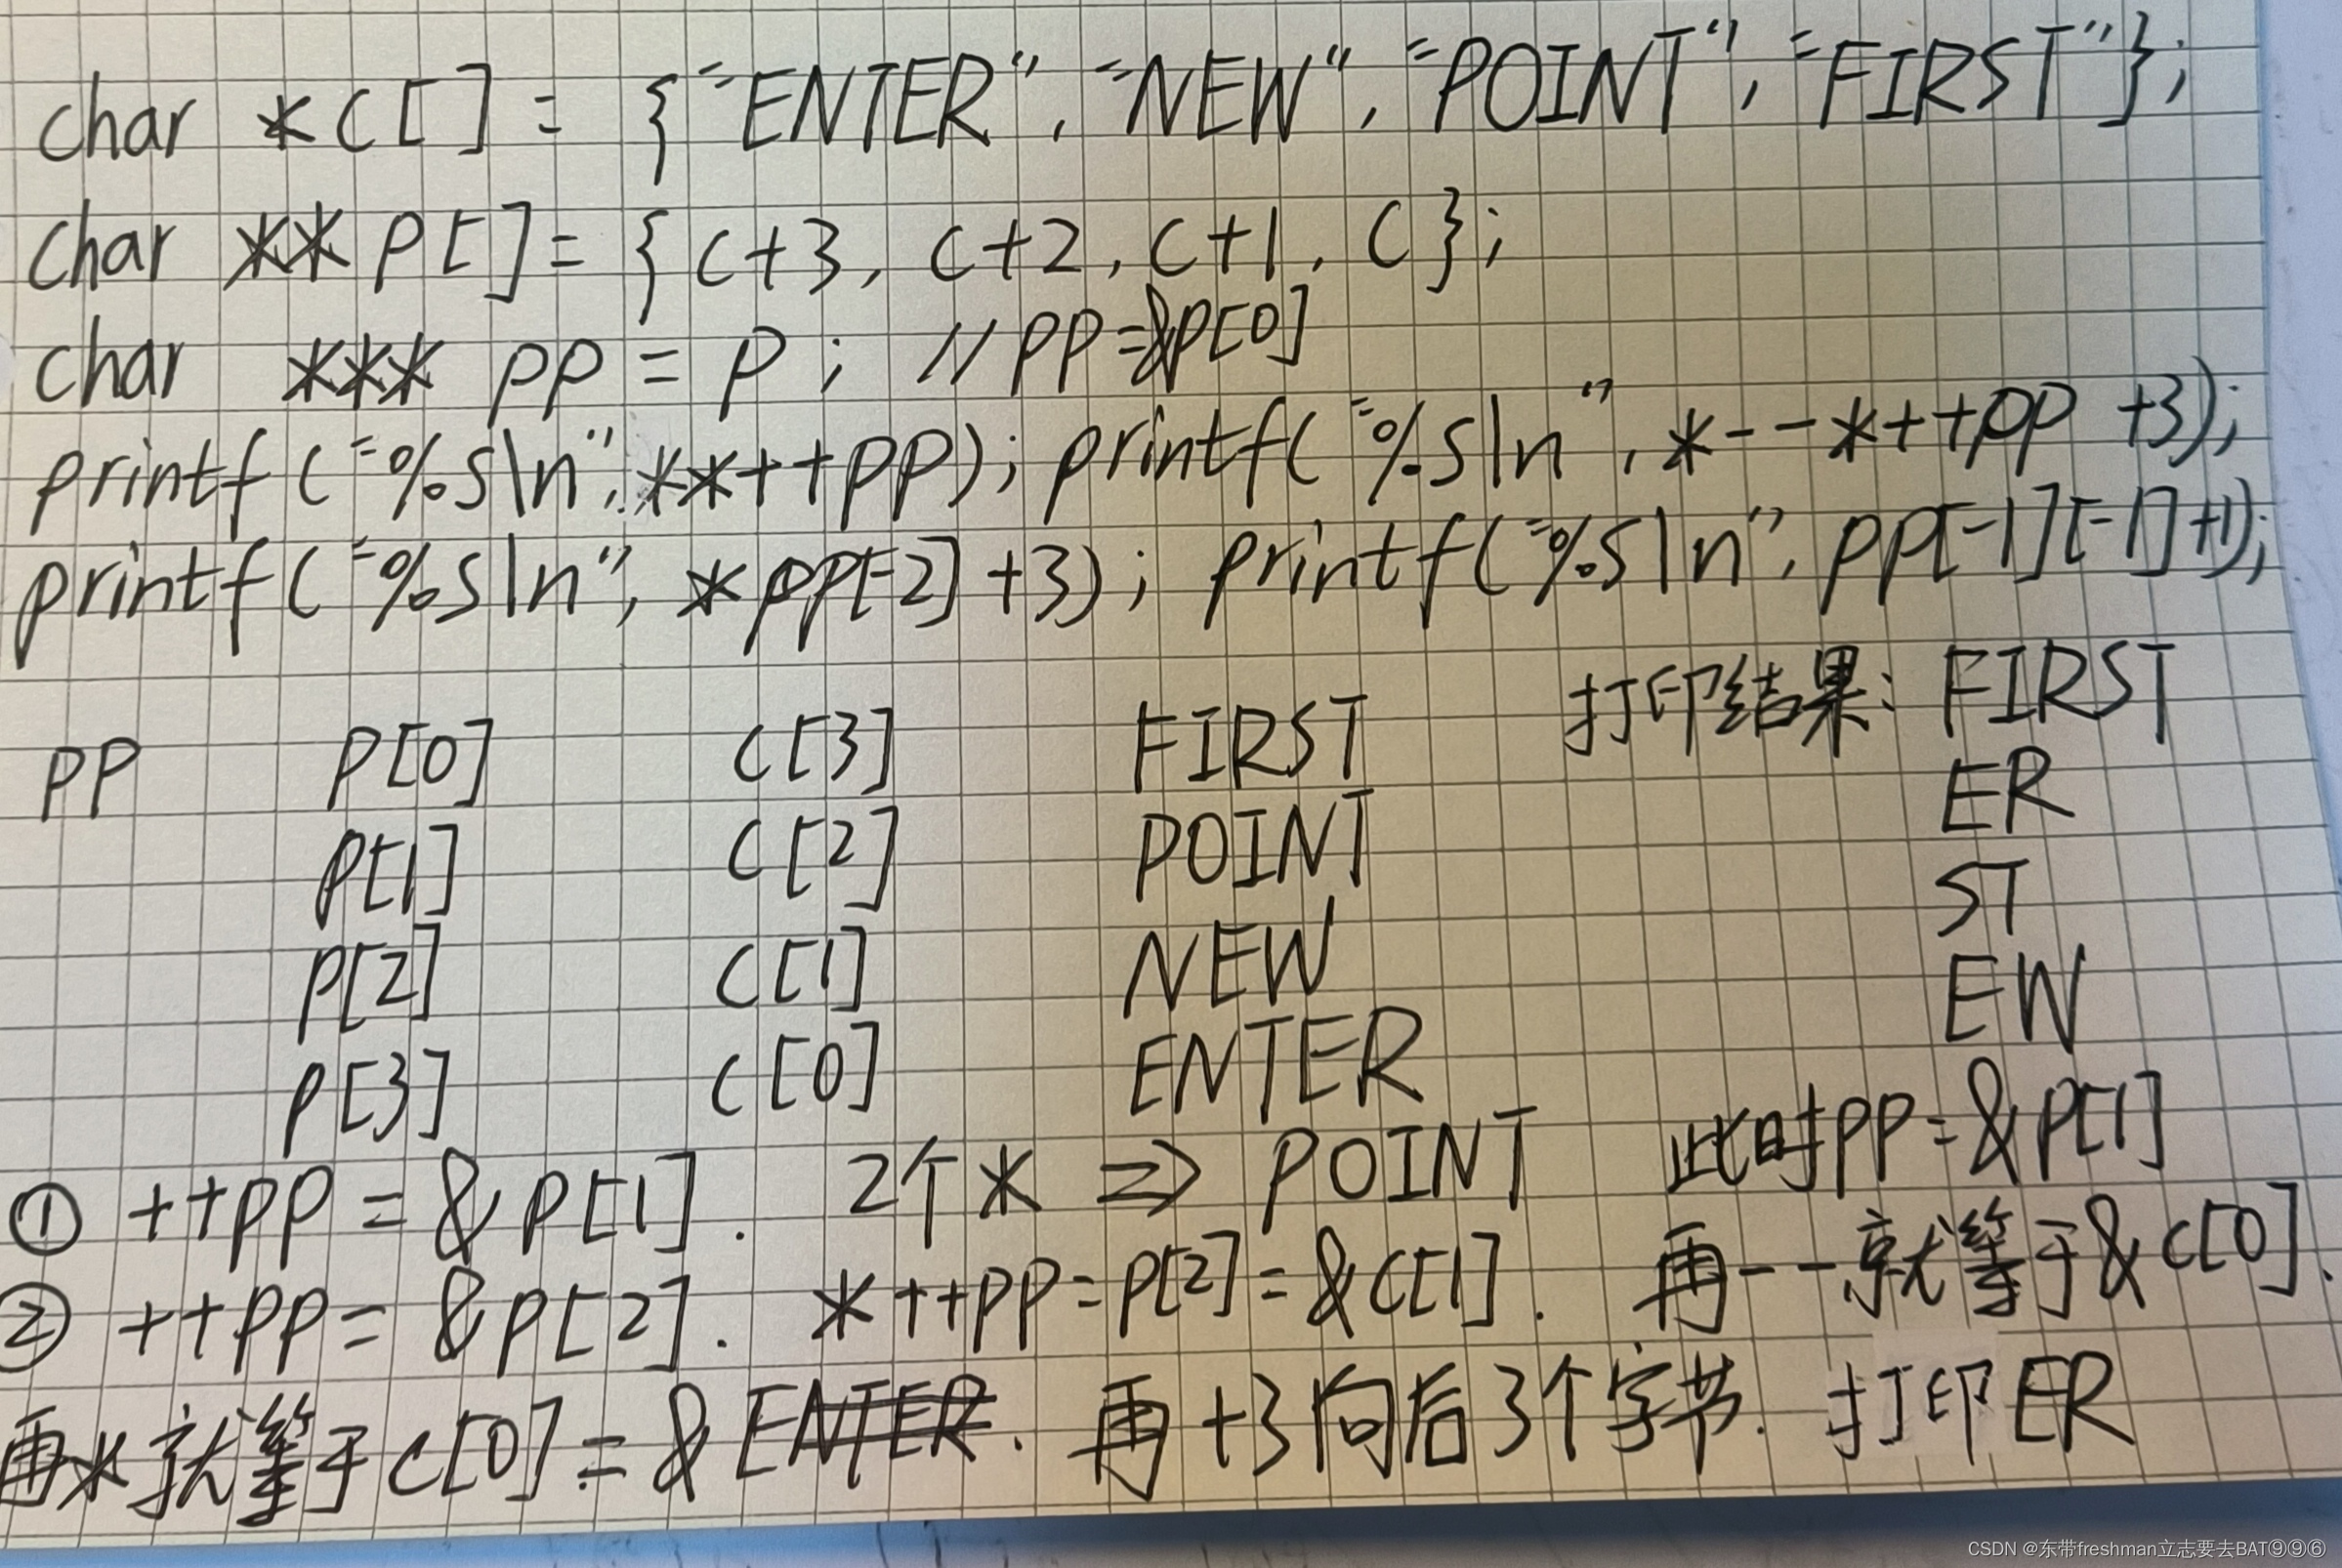 char *c[] = {"ENTER", "NEW", "POINT", "FIRST"};
char **p[] = {c+3, c+2, c+1, c};
char ***pp = p; //pp=&p[0]
printf("%s\n", **++pp); printf("%s\n", *--*++pp +3);
printf("%s\n", *pp[-2]+3); printf("%s\n", pp[-1][-1]+1);
打印结果: FIRST
ER
ST
EW
pp p[0] c[3] FIRST
p[1] c[2] POINT
p[2] c[1] NEW
p[3] c[0] ENTER
① ++pp = &p[1]. 2个* => POINT 此时pp=&p[1]
② ++pp = &p[2]. *++pp=p[2]=&c[1]. 再--就等于&c[0].
再*就等于c[0]=&ENTER. 再+3向后3个字节. 打印ER
CSDN @东带freshman立志要去BAT⑨⑨⑥